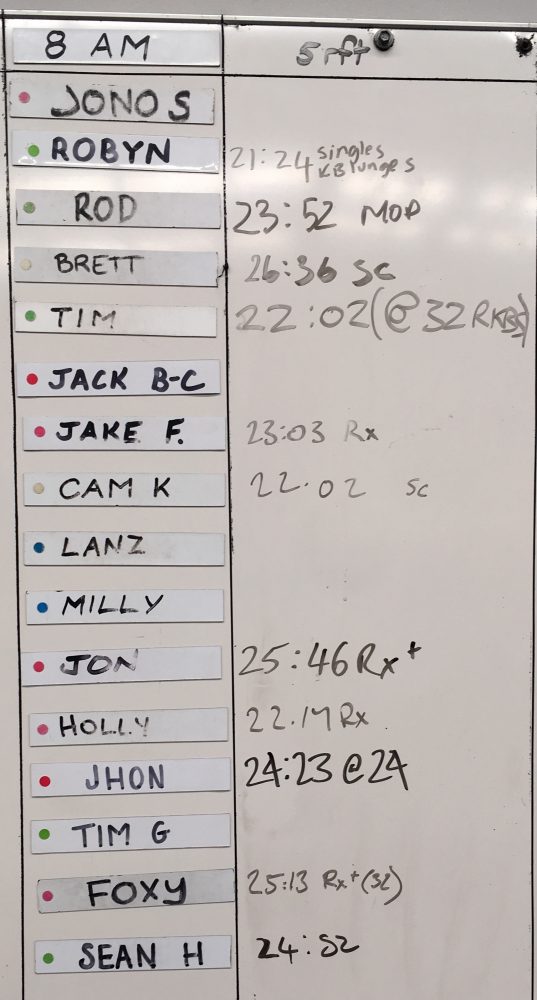 8 AM 5 rft
JONO S
ROBYN 21:24 singles
KB lunges
ROD 23:52 MOD
BRETT 26:36 SC
TIM 22:02 (@ 32 RKBS)
JACK B-C
JAKE F. 23:03 Rx
CAM K 22.02 SC
LANZ
MILLY
JON 25:46 Rx+
HOLLY 22.14 Rx
JHON 24:23 @ 24
TIM G
FOXY 25:13 Rx+ (32)
SEAN H 24:52